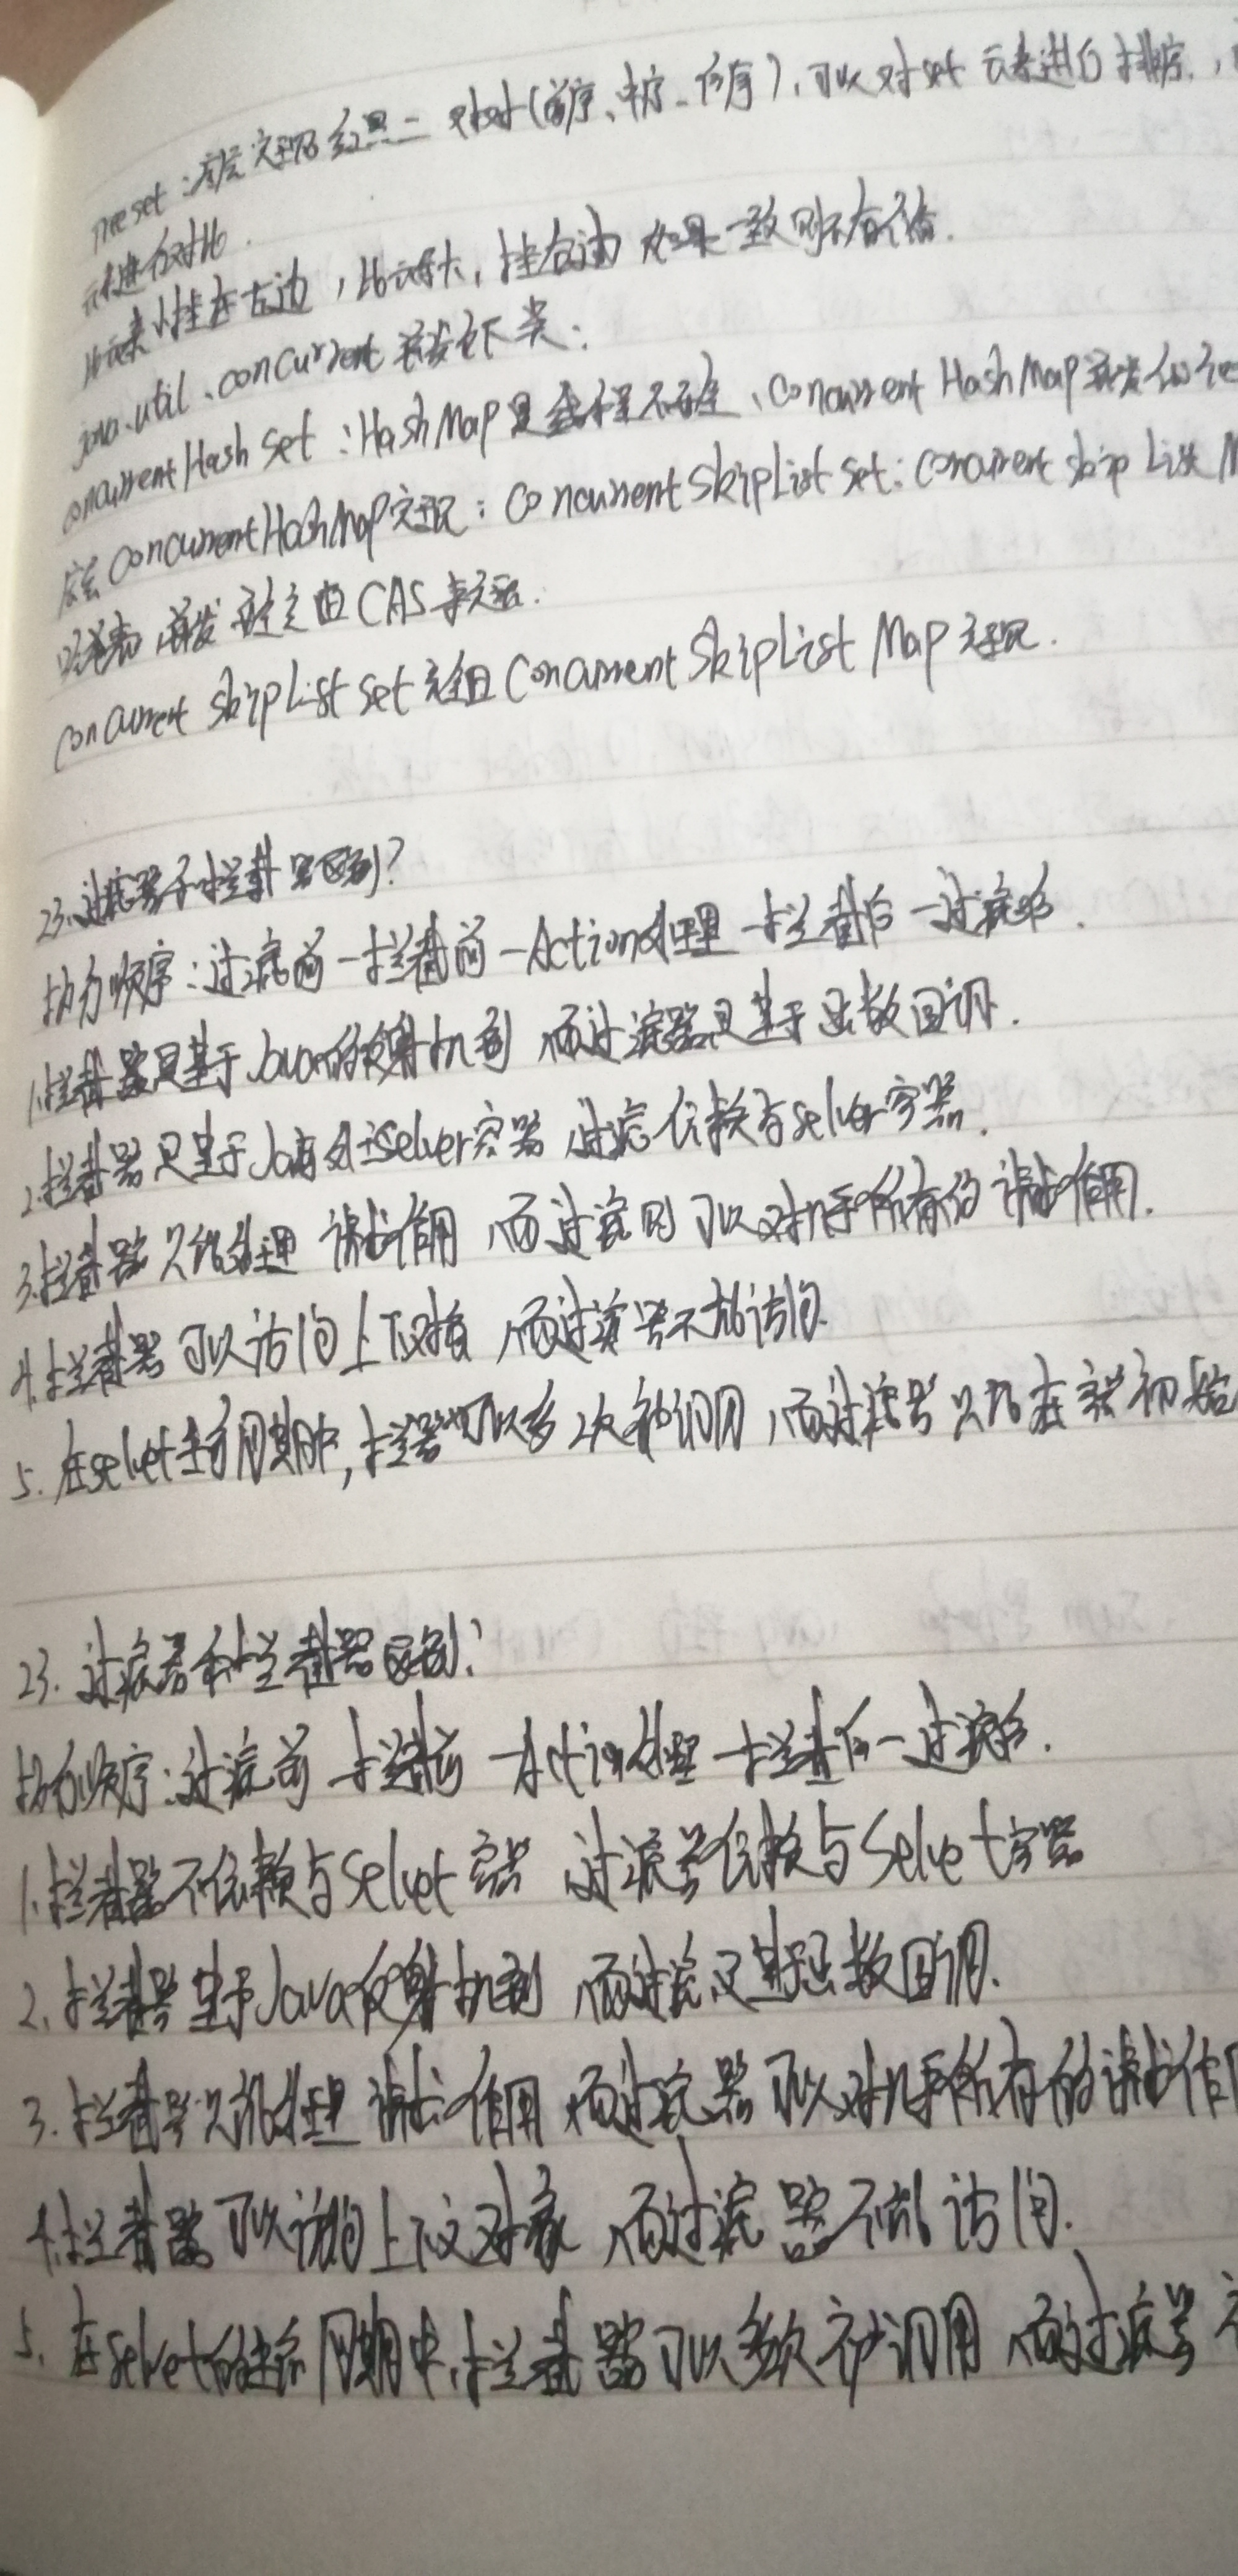 reeset：底层实现红黑二叉树(前序、中序、后序)，可以对set元素进行排序，
元素进行对比．
比元素小挂在左边，比元素大，挂右边 如果一致则不存储．
java.util、concurrent并发包下类：
concurrentHash Set：HashMap是线程不安全、Concurrent HashMap
底层ConcurrentHashMap实现：ConcurrentSkipList Set：Concurrent skip List M
跳表 并发 由CAS来实现．
Concurrent skipList set 底层由ConcurrentSkipList Map实现．
23.过滤器和拦截器区别？
执行顺序：过滤前－拦截前－Action处理－拦截后－过滤后．
1.拦截器是基于Java的反射机制，而过滤器是基于函数回调．
2.拦截器 Selver容器，过滤依赖与selver容器．
3.拦截器只能处理 请求作用，而过滤则可以对几乎所有的请求作用．
4.拦截器可以访问上下文对象，而过滤器不能访问．
5.在selvet生命周期中，拦器可以多次被调用，而过滤器只能在容器初始
23.过滤器和拦截器区别？
执行顺序：过滤前－拦截前－Action处理－拦截后－过滤后．
1.拦截器不依赖与Selvet容器，过滤器依赖与Selvet容器
2.拦截器基于Java反射机制，而过滤是基于函数回调．
3.拦截器只能处理 请求作用，而过滤器可以对几乎所有的请求作用
4.拦截器可以访问上下文对象，而过滤器不能访问．
5.在Selvet的生命周期中，拦截器可以多次被调用，而过滤器